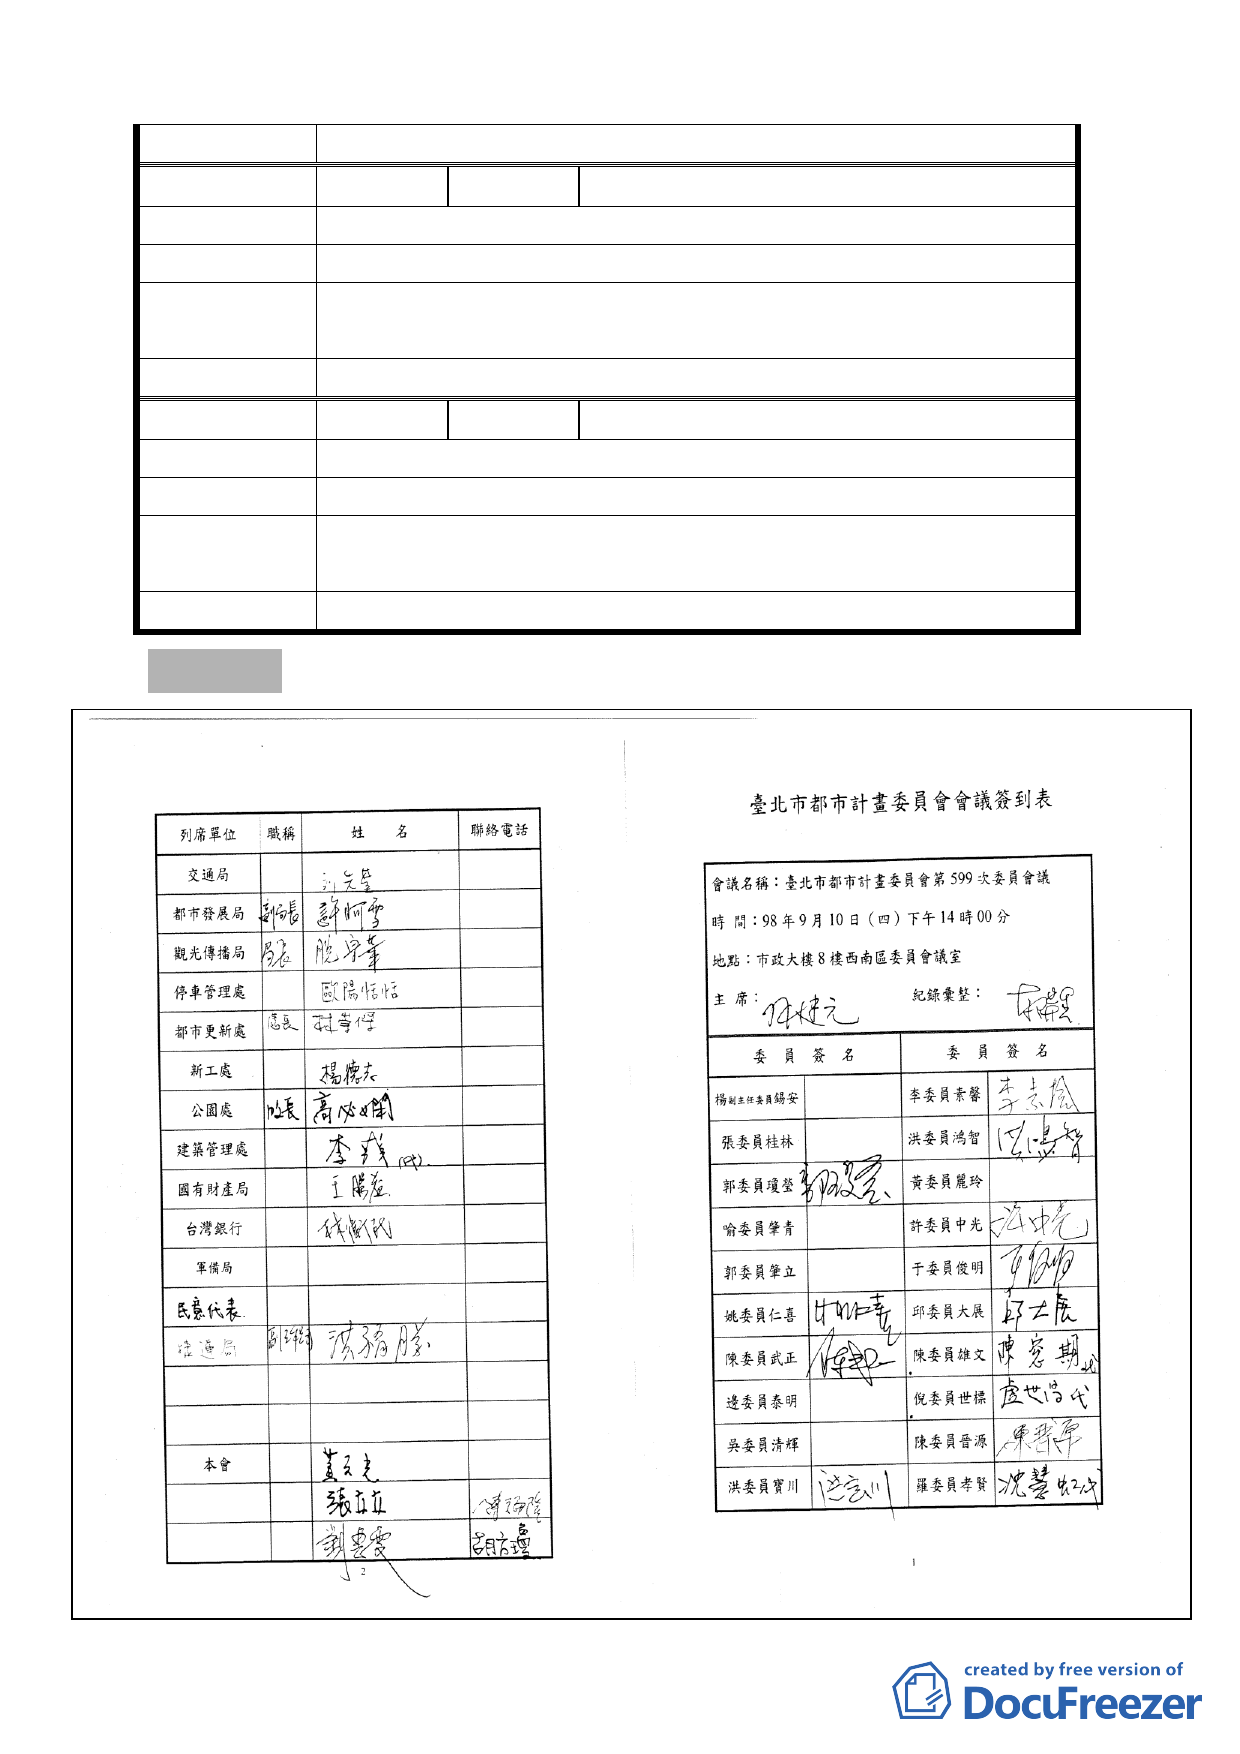 列席單位 職稱 姓 名 聯絡電話
交通局
都市發展局 副局長
觀光傳播局 局長
停車管理處 歐陽恬恬
都市更新處 處長
新工處 楊德志
公園處
建築管理處 李
國有財產局 王
台灣銀行
軍備局
民意代表
本會
張立立
胡方瓊
2
臺北市都市計畫委員會會議簽到表
會議名稱：臺北市都市計畫委員會第 599 次委員會議
時 間：98 年 9 月 10 日（四）下午 14 時 00 分
地點：市政大樓 8 樓西南區委員會議室
主 席： 紀錄彙整：
委 員 簽 名 委 員 簽 名
楊副主任委員錫安 李委員素馨
張委員桂林 洪委員鴻智 洪鴻智
郭委員瓊瑩 黃委員麗玲
喻委員肇青 許委員中光 許中光
郭委員肇立 于委員俊明 于俊明
姚委員仁喜 邱委員大展 邱大展
陳委員武正 陳委員雄文
邊委員泰明 倪委員世標 盧世昌代
吳委員清輝 陳委員晉源 陳晉源
洪委員寶川 洪寶川 羅委員孝賢 沈慧虹代
1
created by free version of
DocuFreezer